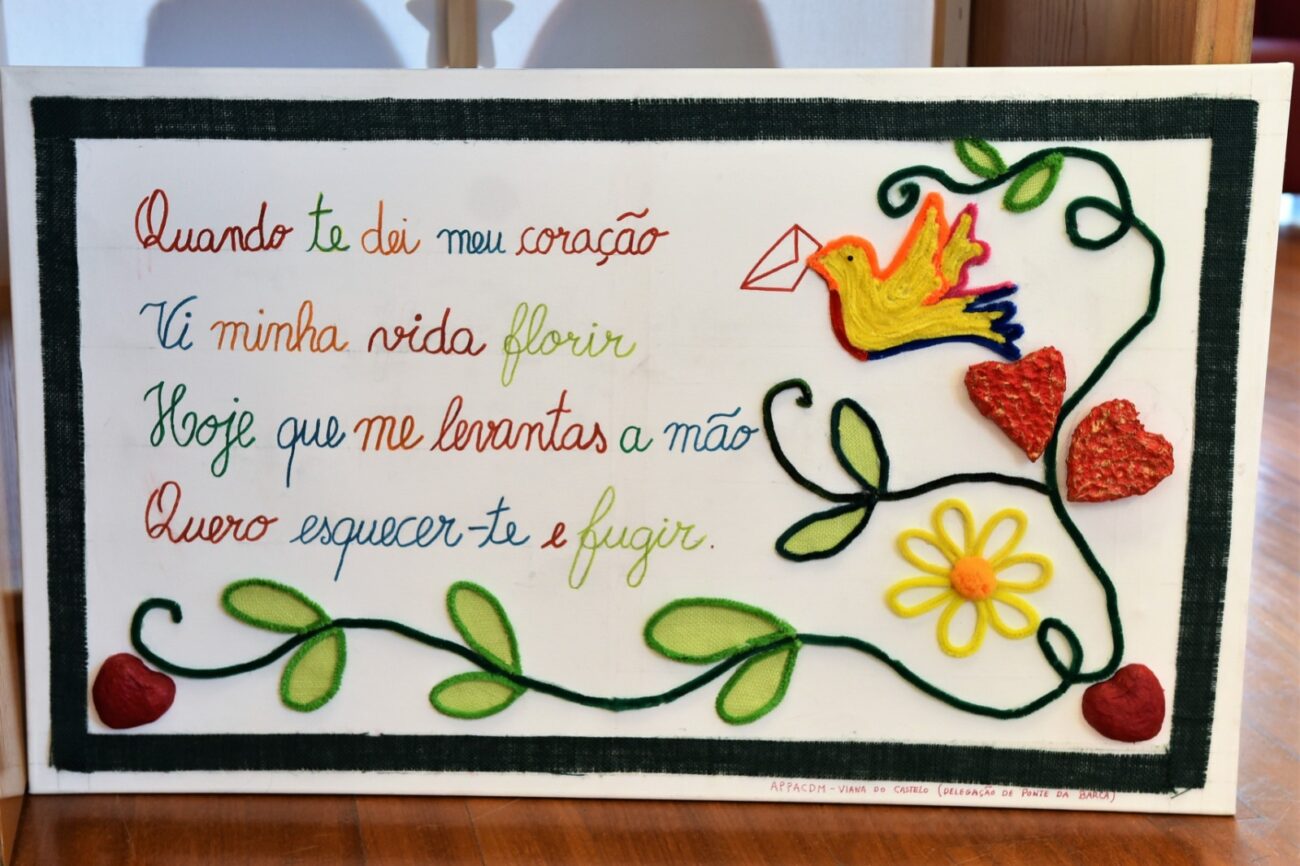 Quando te dei meu coração
Vi minha vida florir
Hoje que me levantas a mão
Quero esquecer-te e fugir.
APPACDM - VIANA DO CASTELO (DELEGAÇÃO DE PONTE DA BARCA)